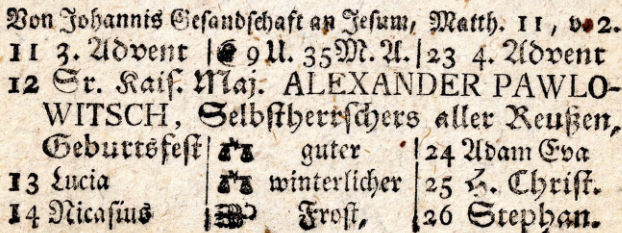 Von Johannis Gesandschaft an Jesum, Matth. 11, v. 2.
11 3. Advent 9 U. 35 M. A. 23 4. Advent
12 Sr. Kais. Maj. ALEXANDER PAWLO-
WITSCH, Selbstherrschers aller Reußen,
Geburtsfest guter 24 Adam Eva
13 Lucia winterlicher 25 H. Christ.
14 Nicasius Frost, 26 Stephan.